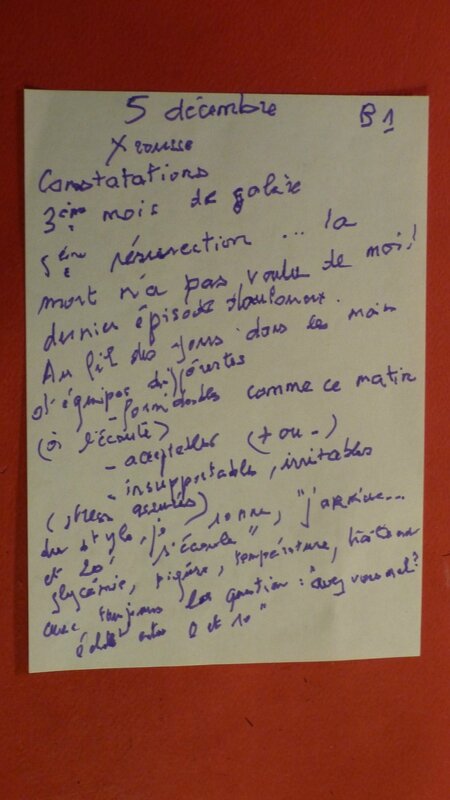 5 décembre B1
X rousse
Constatations
3ème mois de galère
5ème résurrection ... la
mort n'a pas voulu de moi!
dernier épisode
Au fil des jours dans les mains
d'équipes différentes
- formidables comme ce matin
(à l'écoute)
- acceptables (+ ou -)
- insupportables, irritables
(stress assurés)
du style, je sonne, "j'arrive...
et 20' s'écoule"
glycémie, piqûre, température,
avec toujours la question: "avez vous mal?
entre 0 et 10"